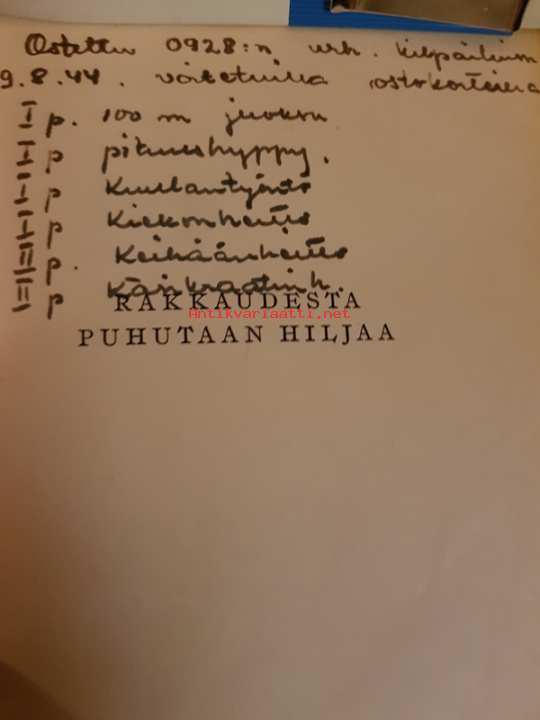 Ostettu 0928:n urh. kilpailuun
9.8.44. voitetuilla ostokorteilla
I p. 100 m juoksu
I p pituushyppy.
I p Kuulantyöntö
I p Kiekonheitto
II p. Keihäänheitto
II p Käsikraatinh.
RAKKAUDESTA
Antikvariaatti.net
PUHUTAAN HILJAA